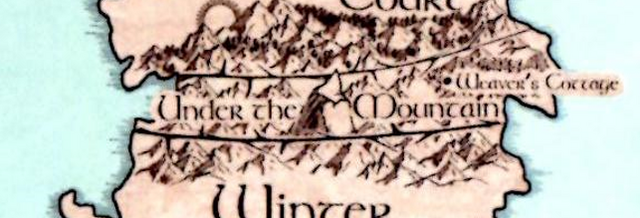 Court
Weaver's Cottage
Under the Mountain
Winter